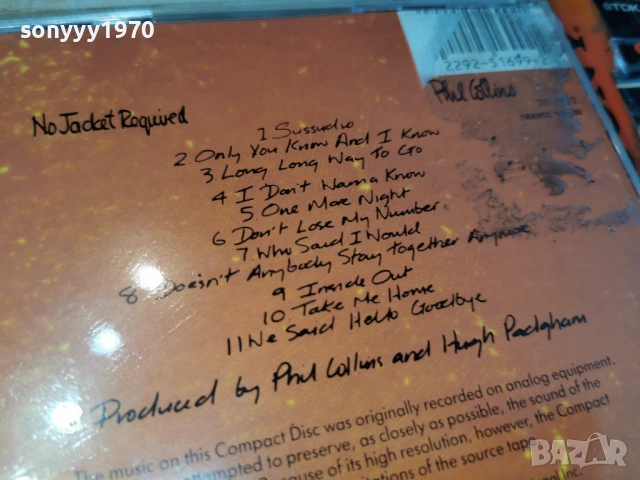 sonyyy1970
TDK
2292-51699-2
No Jacket Required
Phil Collins
1 Sussudio
2 Only You Know And I Know
3 Long Long Way To Go
4 I Don't Wanna Know
5 One More Night
6 Don't Lose My Number
7 Who Said I Would
8 Doesn't Anybody Stay Together Anymore
9 Inside Out
10 Take Me Home
11 We Said Hello Goodbye
Produced by Phil Collins and Hugh Padgham
The music on this Compact Disc was originally recorded on analog equipment.
attempted to preserve, as closely as possible, the sound of the
Because of its high resolution, however, the Compact
limitations of the source tape.
Inc.
BAZAR
bg